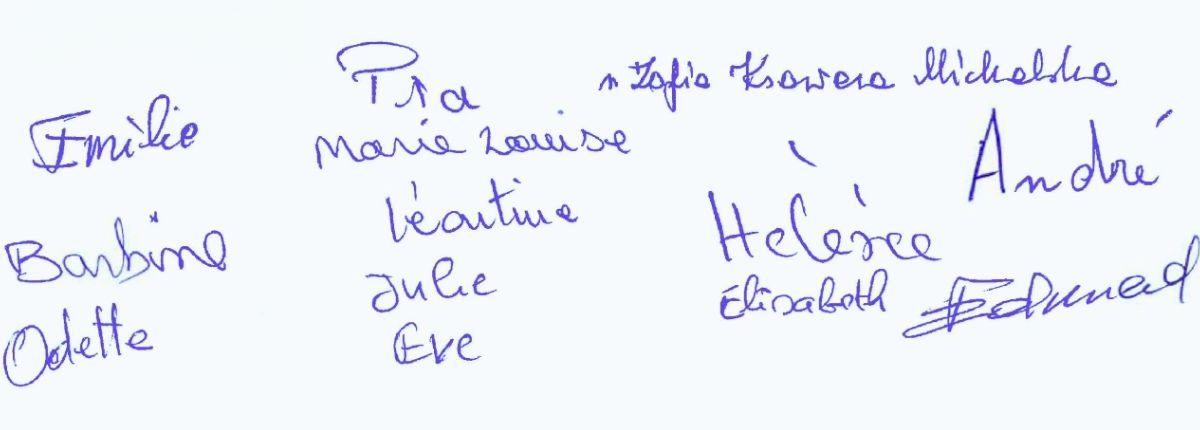 Pia
Zofia Ksawera Michalska
Emilie
Marie Louise
André
Léontine
Hélène
Barbine
Julie
Elisabeth
Edmund
Odette
Eve